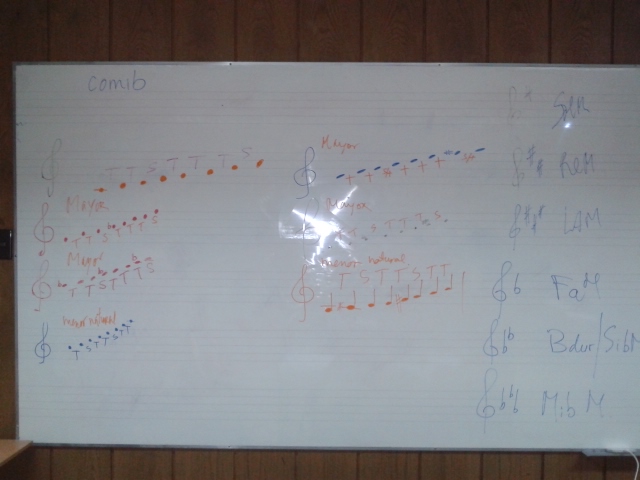 comib
T T S T T T S
Mayor
T T S T T T S
Mayor
T T S T T T S
minor natural
T S T T S T T
Mayor
Mayor
T T S T T T S
minor natural
T S T T S T T
SolM
ReM
LAM
FaM
Bdur/SibM
Mib M